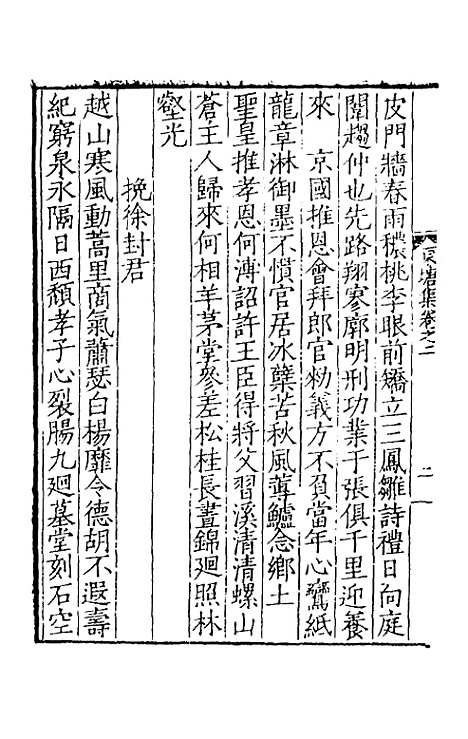 皮門牆春雨穠桃李眼前矯立三鳳雛詩禮日向庭
闈趨仲也先路翔寥廓明刑功業于張俱千里迎養
來　京國推恩會拜郎官勑義方不負當年心鸞紙
龍章淋御墨不慣官居冰蘗苦秋風蓴鱸念鄉土
聖皇推孝恩何溥詔許王臣得將父習溪清清螺山
蒼王人歸來何相羊茅堂參差松桂長晝錦廻照林
壑光
挽徐封君
越山寒風動蒿里商氣蕭瑟白楊靡令德胡不遐壽
紀窮泉永隔日西頹孝子心裂腸九廻墓堂刻石空
塘集卷之二
二